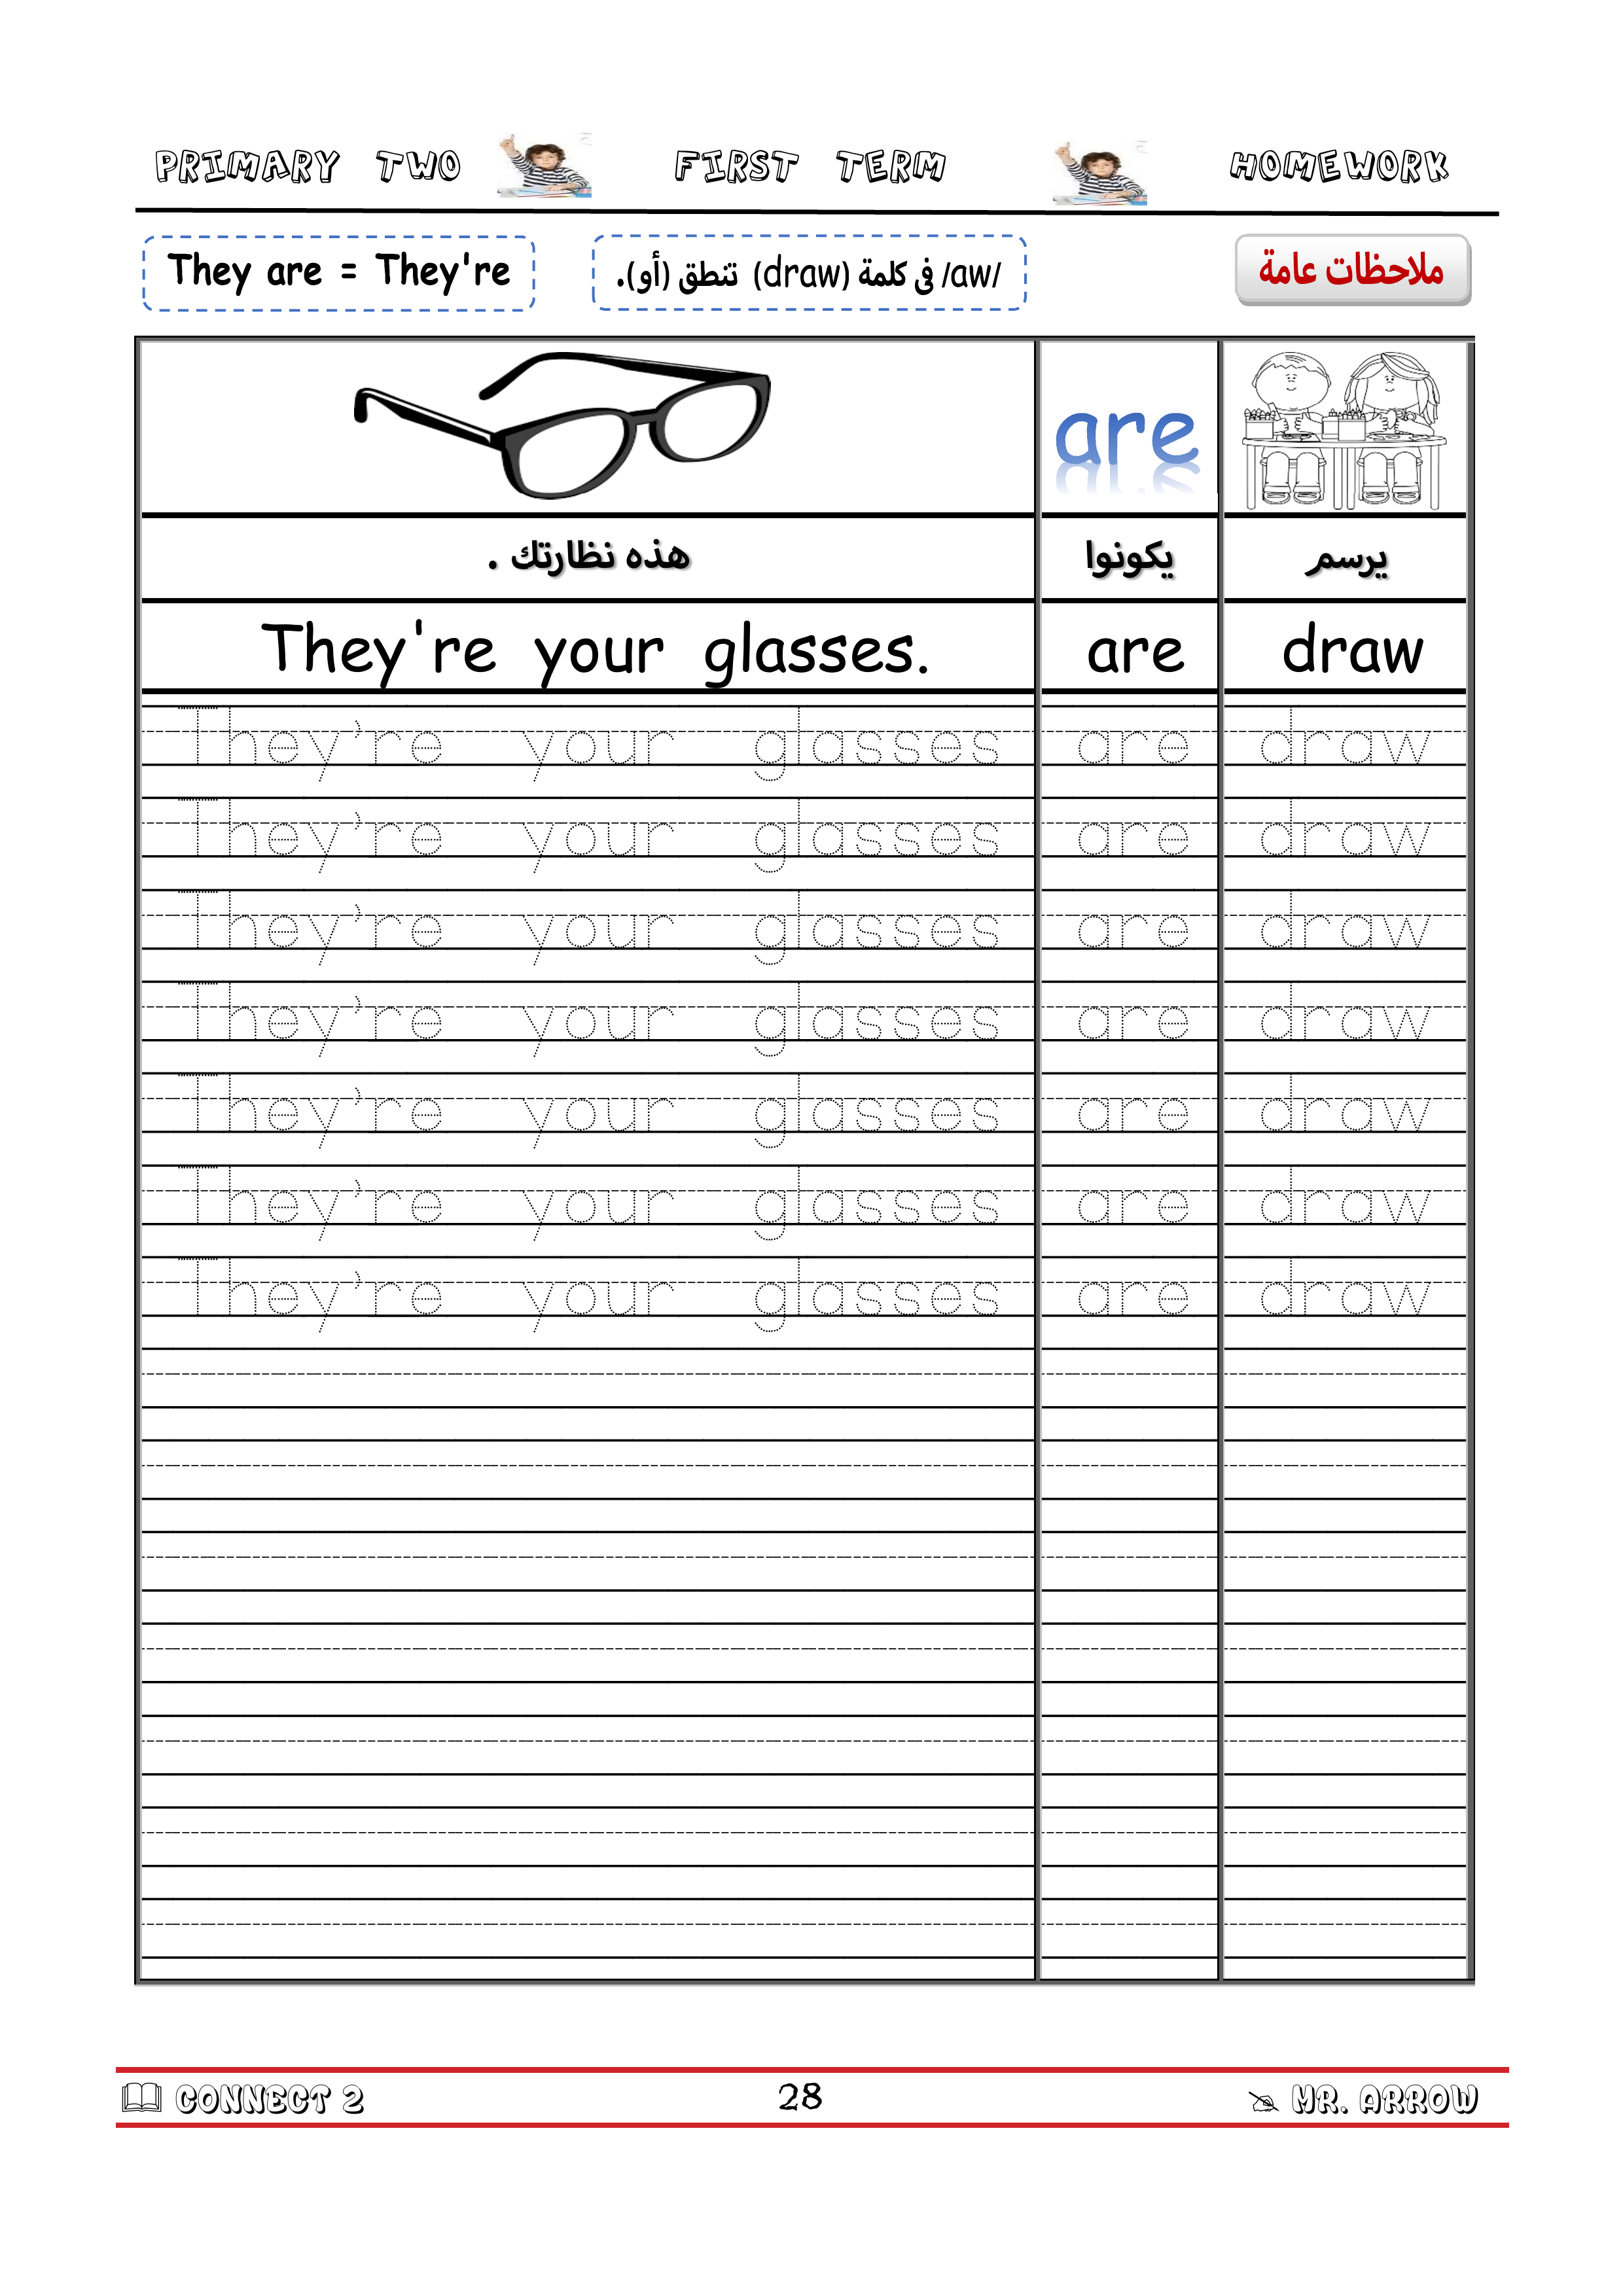 PRIMARY TWO FIRST TERM HOMEWORK
They are = They're /aw/ فى كلمة (draw) تنطق (أو). ملاحظات عامة
are
هذه نظارتك . يكونوا يرسم
They're your glasses. are draw
They're your glasses are draw
They're your glasses are draw
They're your glasses are draw
They're your glasses are draw
They're your glasses are draw
They're your glasses are draw
They're your glasses are draw
CONNECT 2 28 MR. ARROW